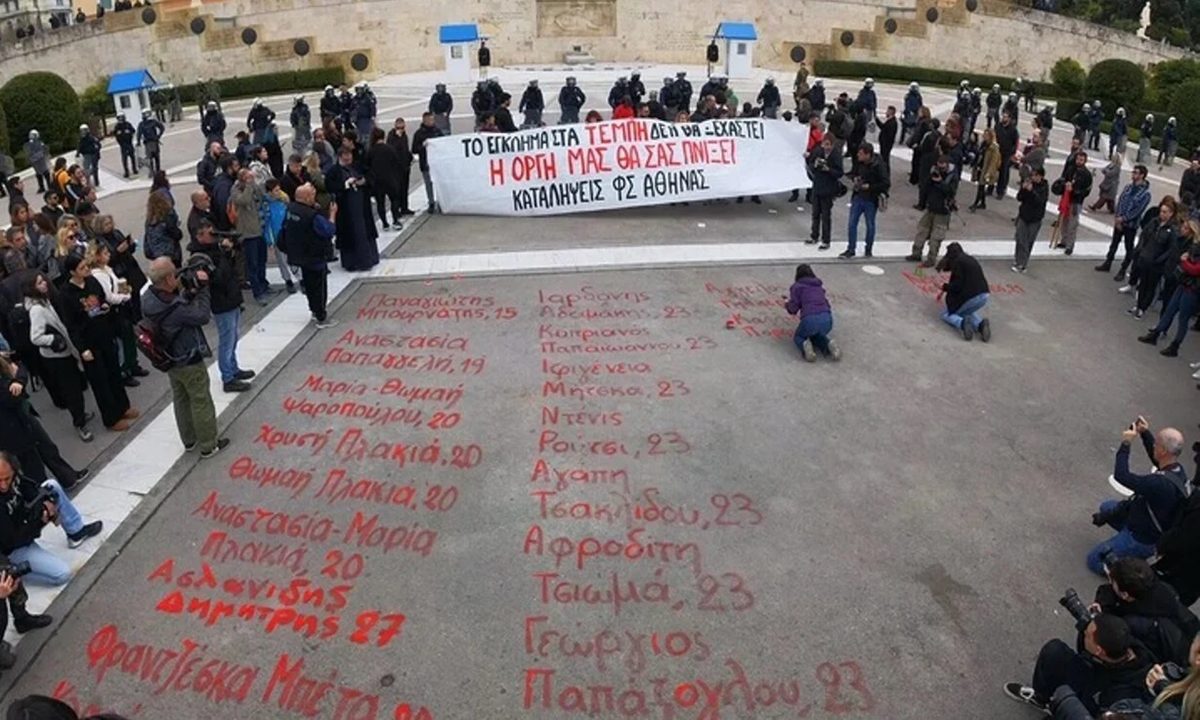 ΤΟ ΕΓΚΛΗΜΑ ΣΤΑ ΤΕΜΠΗ ΔΕΝ ΘΑ ΞΕΧΑΣΤΕΙ
Η ΟΡΓΗ ΜΑΣ ΘΑ ΣΑΣ ΠΝΙΞΕΙ
ΚΑΤΑΛΗΨΕΙΣ ΦΣ ΑΘΗΝΑΣ
Παναγιώτης
Μπουρνάζης, 15
Αναστασία
Παπαγγελή, 19
Μαρία-Θωμαή
Ψαροπούλου, 20
Χρυσή Πλακιά, 20
Θωμαή Πλακιά, 20
Αναστασία-Μαρία
Πλακιά, 20
Ασλανίδης
Δημήτρης 27
Φραντζέσκα Μπέζα
Ιορδάνης
Αδαμάκης, 23
Κυπριανός
Παπαϊωάννου 23
Ιφιγένεια
Μήτσκα, 23
Ντένις
Ρούτσι, 23
Αγάπη
Τσακλίδου, 23
Αφροδίτη
Τσιωμά, 23
Γεώργιος
Παπάζογλου, 23